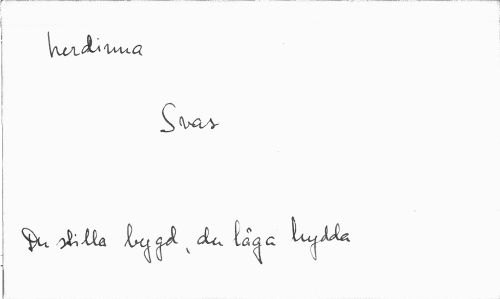 herdinna
Svas
Du stilla bygd, du låga hydda